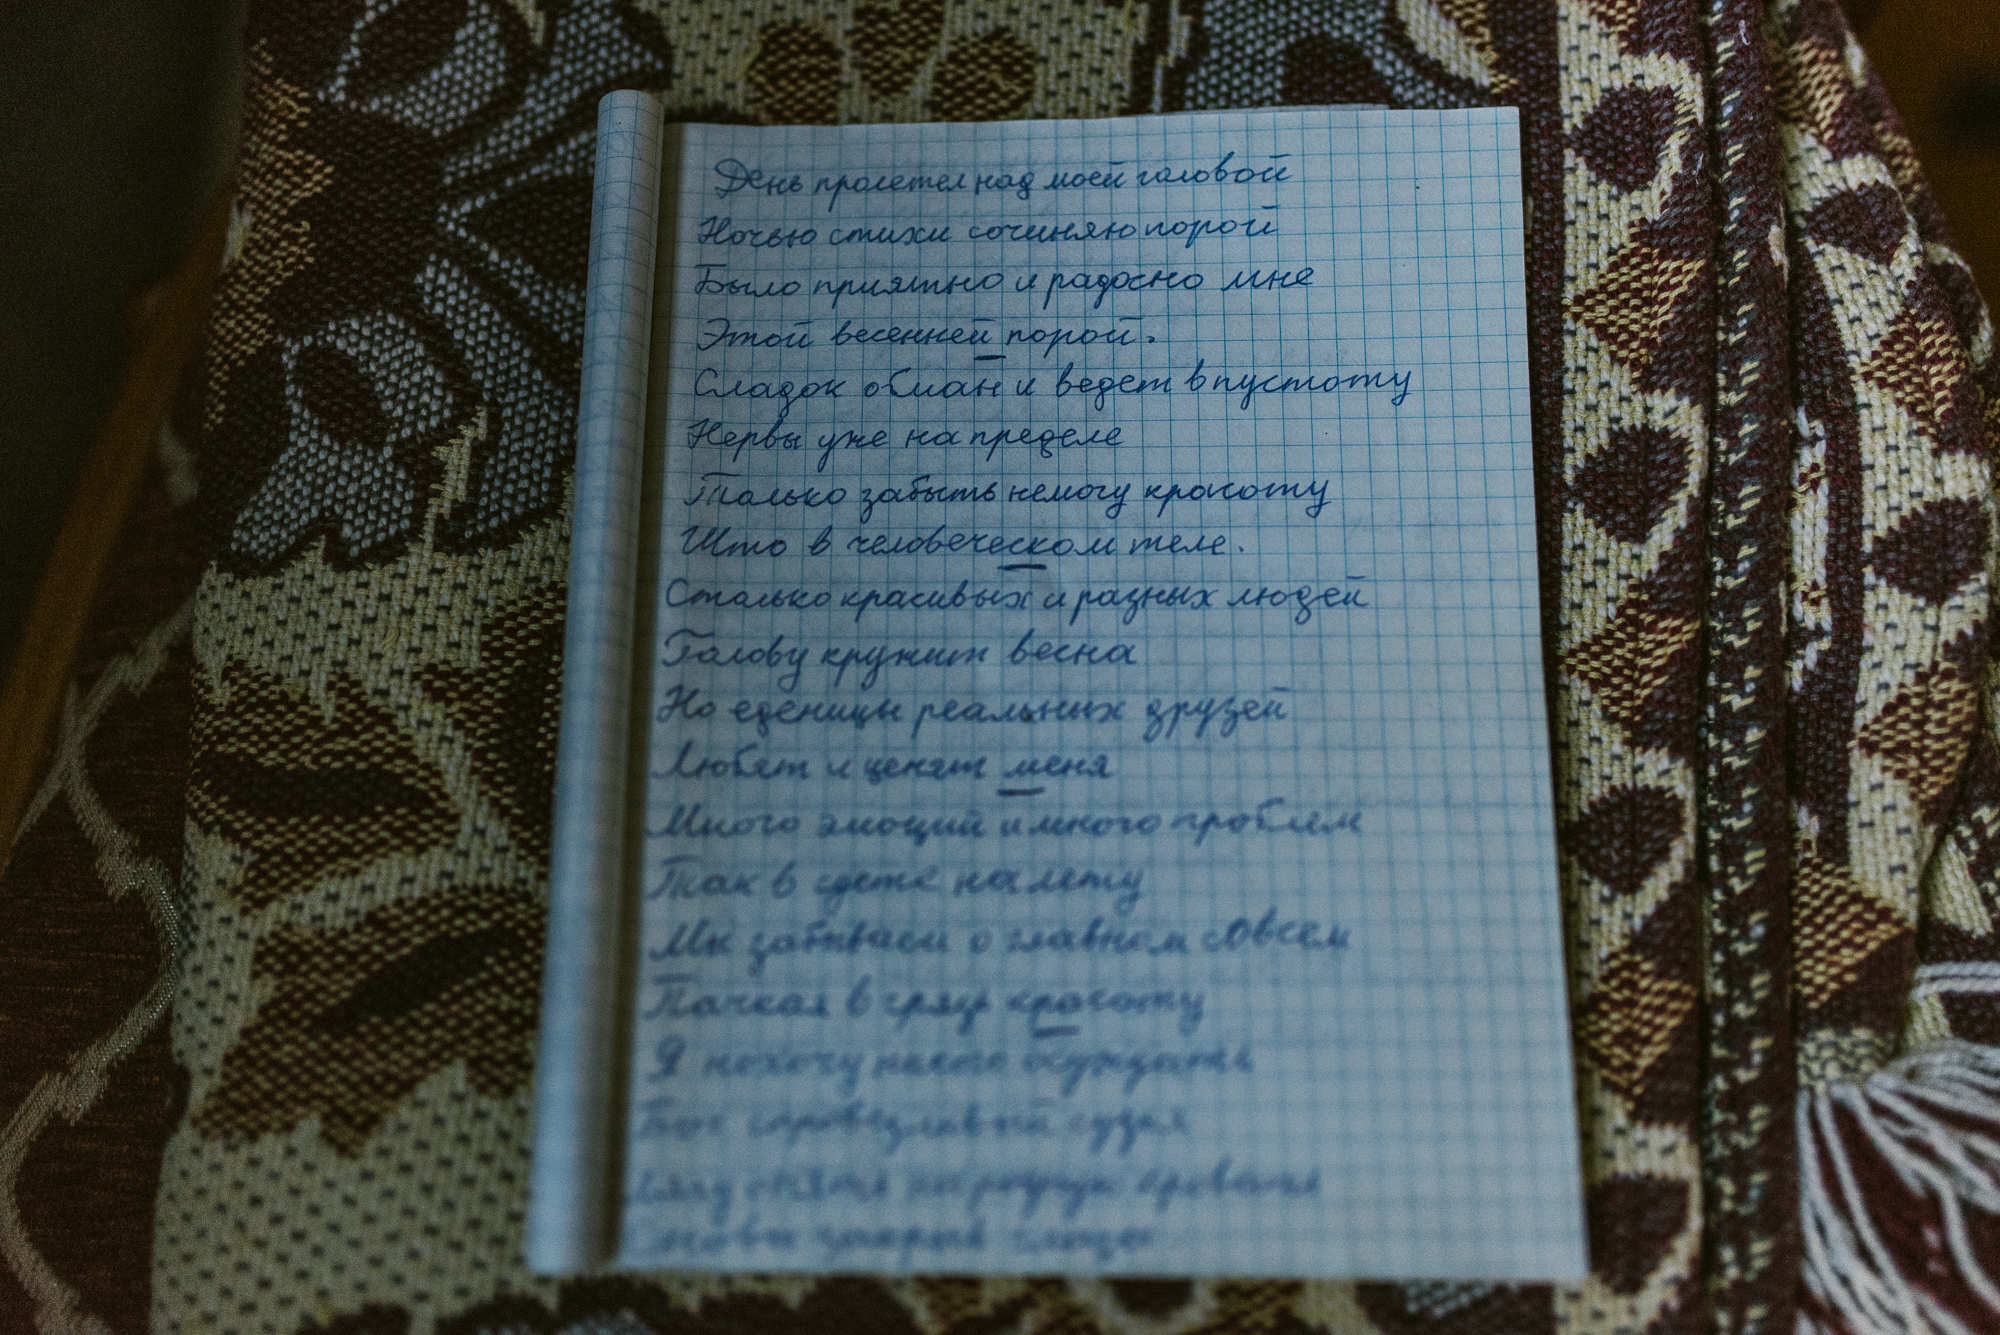 День пролетел над моей головой
Ночью стихи сочиняю порой
Было приятно и радосно мне
Этой весенней порой.
Сладок обман и ведет в пустоту
Нервы уже на пределе
Только забыть немогу красоту
Што в человеческом теле.
Столько красивых и разных людей
Голову кружит весна
Но еденицы реальных друзей
Любят и ценят меня
Много эмоций и много проблем
Так в суете на лету
Мы забываем о главном совсем
Пачкая в грязи красоту
Я нехочу никого осуждать
Бог справедливый судья